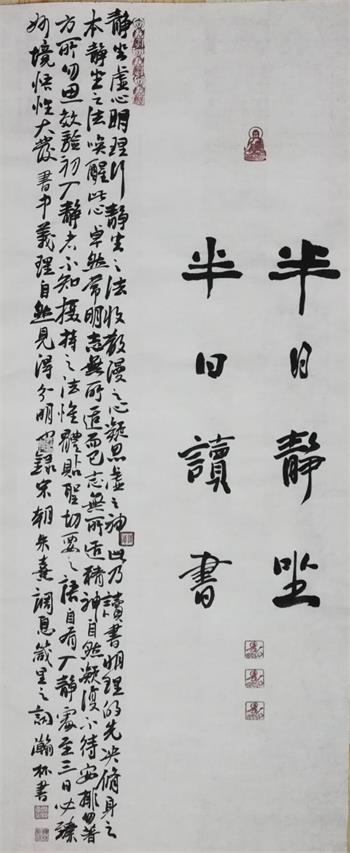 半日靜坐
半日讀書
靜坐虛心明理行靜坐之法收散漫之心凝思虛之神此乃讀書明理的先決脩身之
本靜坐之法喚醒此心卓然常明志無所適而已志無所適精神自然凝復不待安排勿著
方所勿思效驗初入靜者不知攝持之法惟體貼聖切要之語自有入靜處至三日必臻
妙境悟性大發書中義理自然見得分明 錄宋朝朱熹調息箴里之詞瀚林書